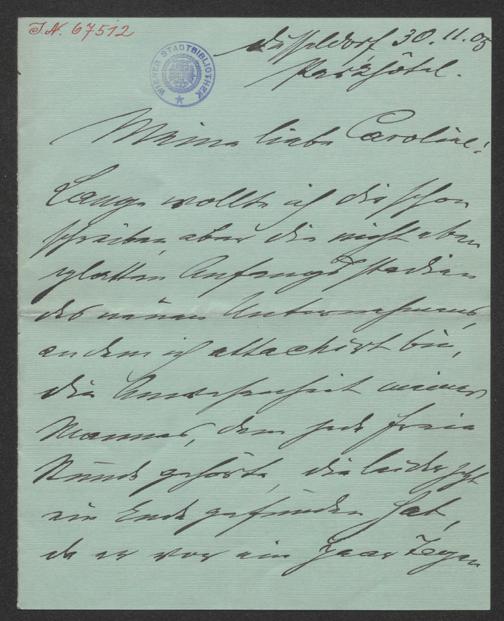 J.N. 67512
WIENER STADTBIBLIOTHEK
Düsseldorf 30.11.05
Parkhôtel.
Meine liebe Caroline!
Lange wollte ich dir schon
schreiben, aber die nicht eben
glatten Anfangsstadien
des neuen Unternehmens,
an dem ich attachirt bin,
die Anwesenheit meines
Mannes, dem jede freie
Stunde gehörte, die leider jetzt
ein Ende gefunden hat,
da er vor ein paar Tagen